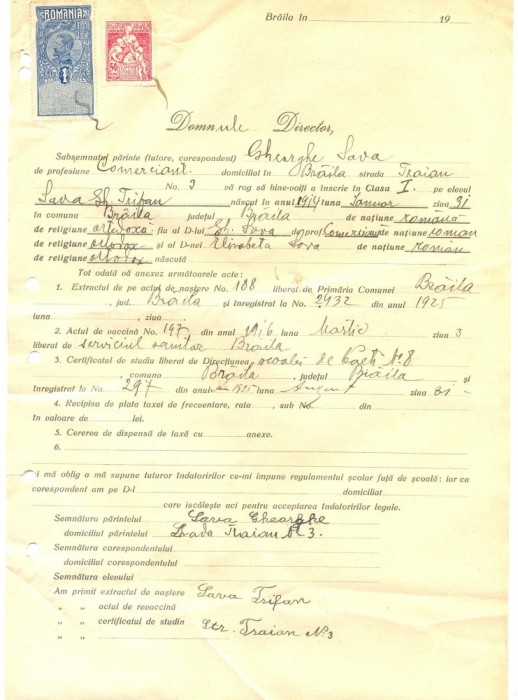 ROMANIA
1
50
Brăila în 19
Domnule Director,
Subsemnatul părinte (tutore, corespondent) Gheorghe Sava
de profesiune Comerciant. domiciliat în Brăila strada Traian
No. 3 vă rog să bine-voiți a înscrie în Clasa I. pe elevul
Sava Gh. Trifan născut în anul 1914 luna Ianuar ziua 31
în comuna Brăila județul Brăila de națiune română
de religiune ortodoxă fiu al D-lui Gh. Sova de prof. Comerciant de națiune roman
de religiune ortodox și al D-nei Elisabeta Sova de națiune român
de religiune ortodox născută
Tot odată vă anexez următoarele acte:
1. Extractul de pe actul de naștere No. 188 liberat de Primăria Comunei Brăila
, jud. Brăila și înregistrat la No. 2932 din anul 1925
luna , ziua
2. Actul de vaccină No. 147 din anul 1916 luna Martie ziua 3
liberat de serviciul sanitar Brăila
3. Certificatul de studiu liberat de Direcțiunea școalei de băeți N. 8
, comuna Brăila , județul Brăila și
înregistrat la No. 297 din anul 1925 luna August ziua 31 -
4. Recipisa de plata taxei de frecuentare, rata , sub No. din
în valoare de lei.
5. Cererea de dispensă de taxă cu anexe.
6.
i mă oblig a mă supune tuturor îndatoririlor ce-mi impune regulamentul școlar față de școală: iar ca
corespondent am pe D-l domiciliat
care iscălește aci pentru acceptarea îndatoririlor legale.
Semnătura părintelui Sava Gheorghe
domiciliul părintelui Strada Traian N 3.
Semnătura corespondentului
domiciliul corespondentului
Semnătura elevului
Am primii extractul de naștere Sava Trifan
„ „ actul de revoccină
„ „ certificatul de studin Str. Traian No 3
„ „